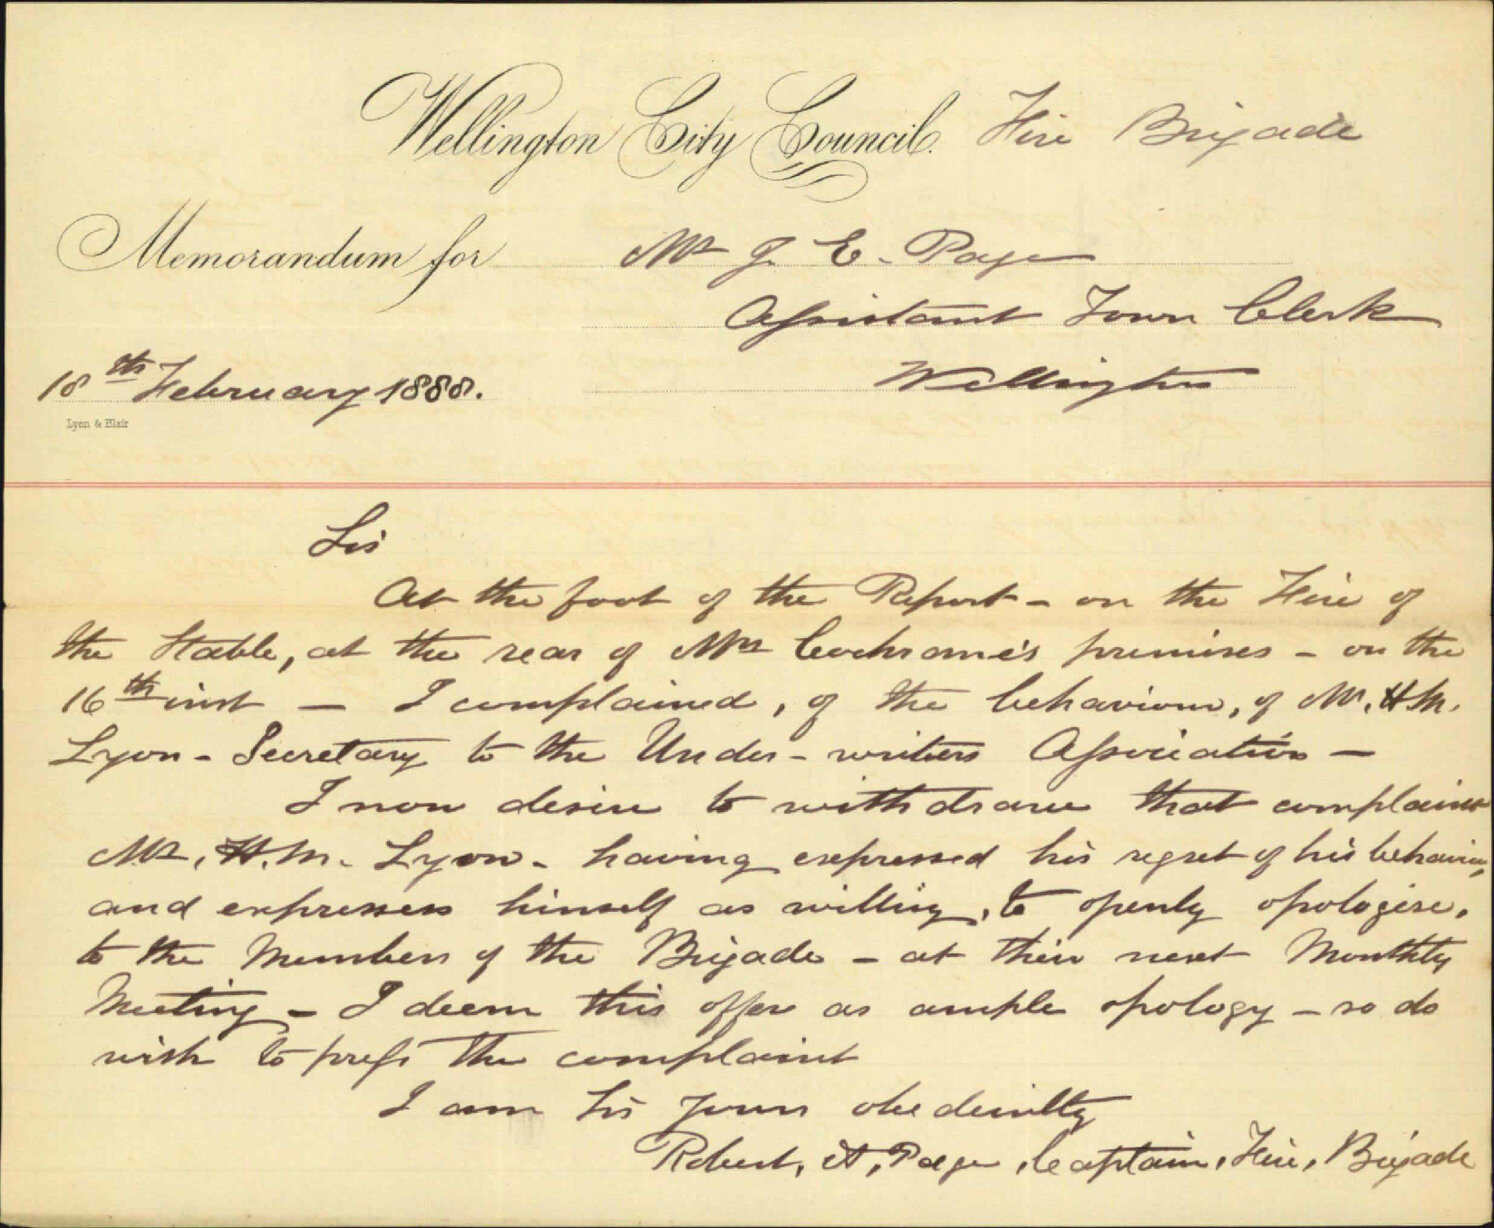 Wellington City Council. Fire Brigade
Memorandum for Mr J. E. Page
Assistant Town Clerk
18th February 1888. Wellington
Lyon & Blair
Sir
At the foot of the Report - on the Fire of
the Stable, at the rear of Mrs Cochrame's premises - on the
16th inst - I complained, of the behaviour, of Mr. H.M.
Lyon - Secretary to the Under-writers Association -
I now desire to withdraw that complaint
Mr. H.M. Lyon - having expressed his regret of his behaviour,
and expresses himself as willing, to openly opologise,
to the Members of the Brigade - at their next Monthly
Meeting - I deem this offer as ample opology - so do
wish to press the complaint
I am Sir yours obediently
Robert, A, Page, Captain, Fire, Brigade